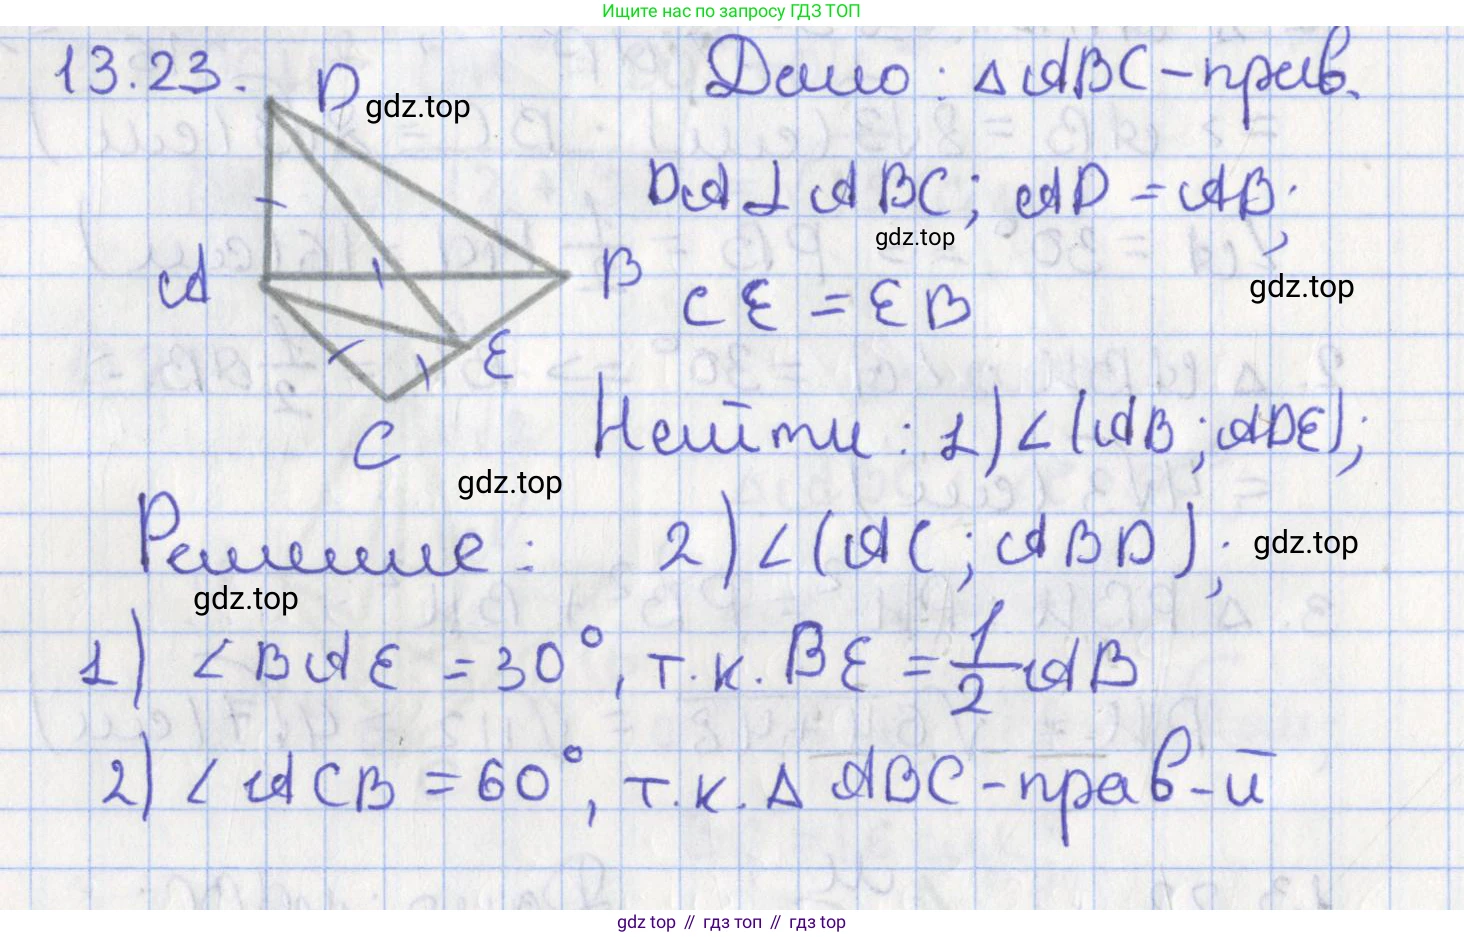 Ищите нас по запросу ГДЗ ТОП
13.23.
D
gdz.top
Дано: △ABC – прав.
DA ⊥ ABC; AD = AB;
gdz.top
A
B
CE = EB
gdz.top
E
C
Найти: 1) ∠(AB; ADE);
gdz.top
Решение: 2) ∠(AC; ABD);
gdz.top
gdz.top
1) ∠BAE = 30°, т.к. BE = 1/2 AB
2) ∠ACB = 60°, т.к. △ ABC – прав-й
gdz top // гдз топ // gdz top